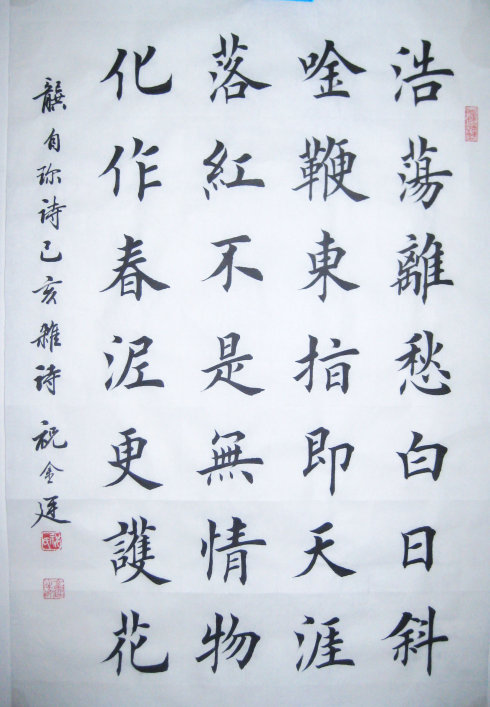 浩蕩離愁白日斜
唫鞭東指即天涯
落紅不是無情物
化作春泥更護花
龔自珎诗己亥雜诗 祝金廷